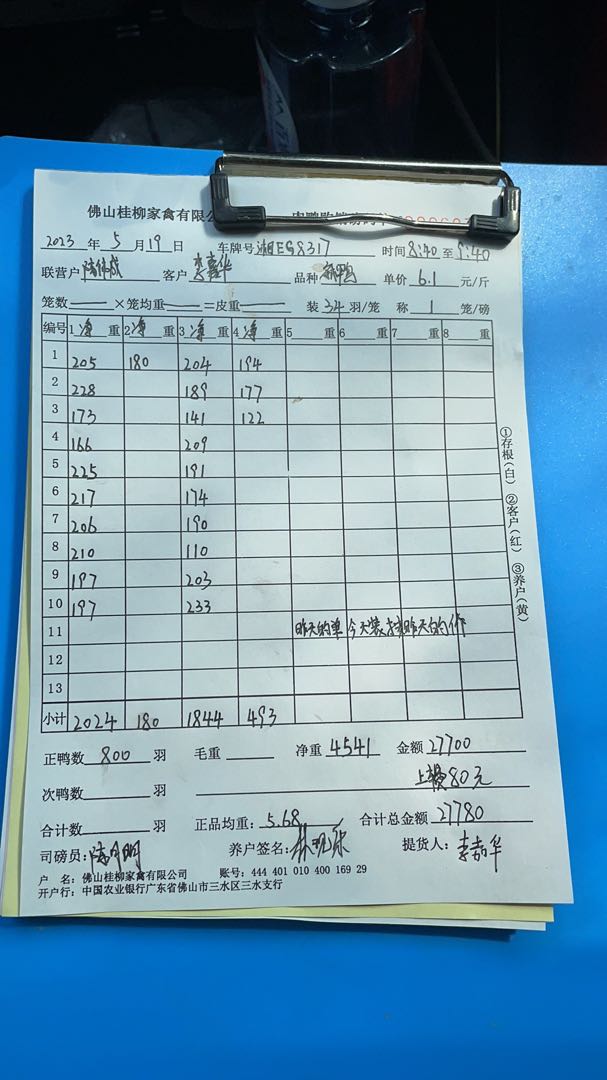 佛山桂柳家禽有限公
2023 年 5 月 19 日 车牌号 湘EG8317 时间 8:40 至 9:40
联营户 客户 李嘉华 品种 单价 6.1 元/斤
笼数 ×笼均重 =皮重 装 34 羽/笼 称 1 笼/磅
编号 1 净 重 2 净 重 3 净 重 4 净 重 5 重 6 重 7 重 8 重
1 205 180 204 194
2 228 189 177
3 173 141 122
4 166 209
5 225 191
6 217 174
7 206 190
8 210 110
9 197 203
10 197 233
11 昨天的单 今天装 昨天的
12
13
小计 2024 180 1844 493
①存根(白) ②客户(红) ③养户(黄)
正鸭数 800 羽 毛重 净重 4541 金额 27700
次鸭数 羽 上 80元
合计数 羽 正品均重: 5.68 合计总金额 27780
司磅员: 养户签名: 提货人: 李嘉华
户 名: 佛山桂柳家禽有限公司 账号: 444 401 010 400 169 29
开户行: 中国农业银行广东省佛山市三水区三水支行